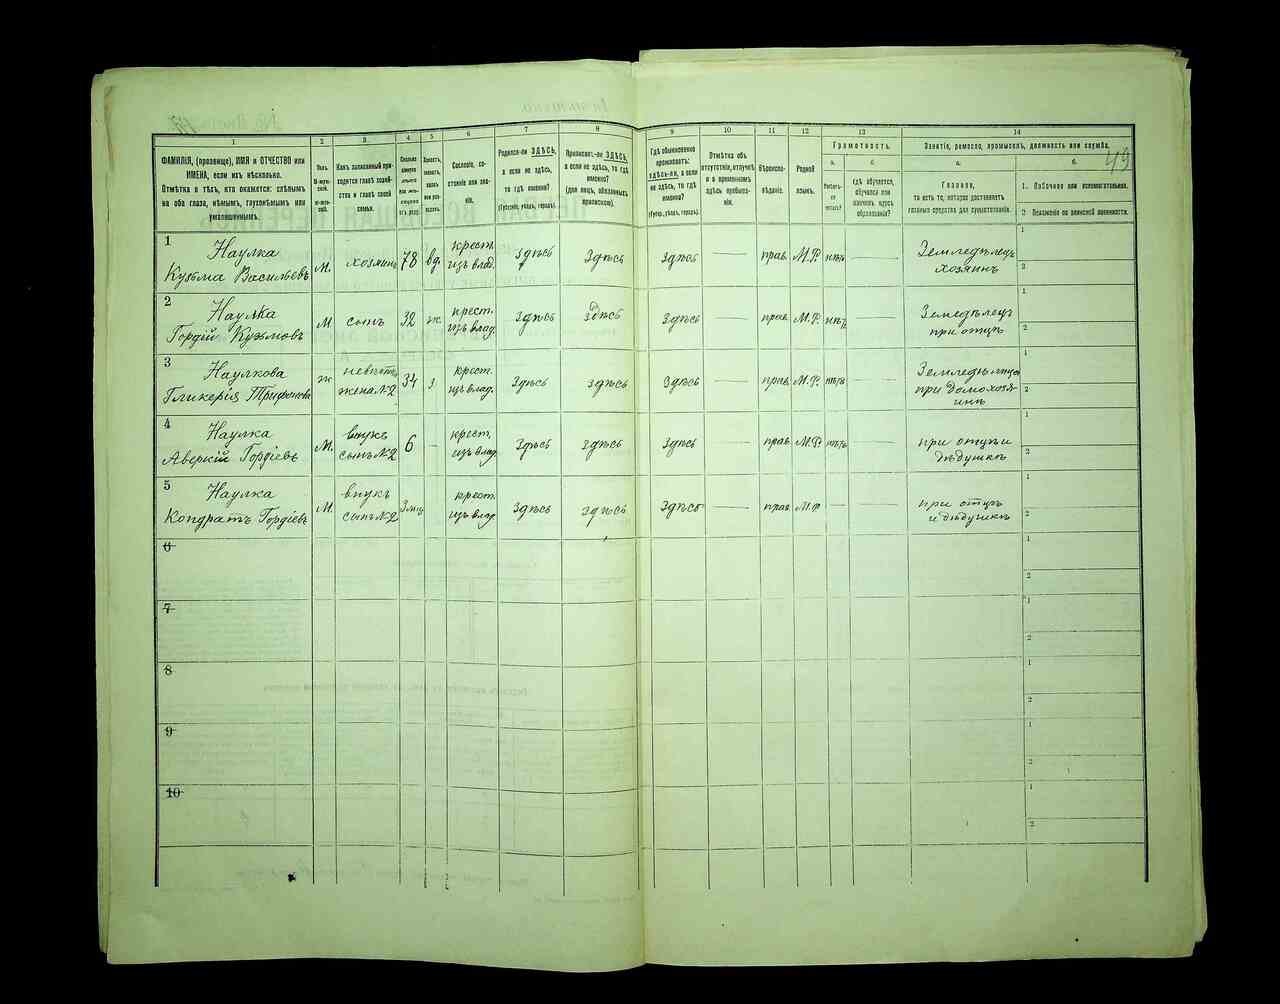 49
1
2
3
4
5
6
7
8
9
10
11
12
13
14
ФАМИЛІЯ, (прозвище), ИМЯ и ОТЧЕСТВО или
ИМЕНА, если ихъ нѣсколько.
Отмѣтка о тѣхъ, кто окажется: слѣпымъ
на оба глаза, нѣмымъ, глухонѣмымъ или
умалишеннымъ.
Полъ.
Какъ записанный при-
ходится главѣ хозяй-
ства и главѣ своей
семьи.
Сословіе, со-
стояніе или зва-
ніе.
Родился-ли ЗДѢСЬ,
а если не здѣсь,
то гдѣ именно?
(Губернія, уѣздъ, городъ).
Приписанъ-ли ЗДѢСЬ,
а если не здѣсь, то гдѣ
именно?
(для лицъ, обязанныхъ
припискою).
Гдѣ обыкновенно
проживаетъ:
ЗДѢСЬ-ЛИ, а если
не здѣсь, то гдѣ
именно?
(Губер., уѣздъ, городъ).
Отмѣтка объ
отсутствіи, отлучкѣ
и о временномъ
здѣсь пребыва-
ніи.
Вѣроиспо-
вѣданіе.
Родной
языкъ.
Грамотность.
а.
б.
Умѣетъ-
ли
читать?
гдѣ обучается,
обучался или
кончилъ курсъ
образованія?
Занятіе, ремесло, промыселъ, должность или служба.
а.
б.
Главное,
то есть то, которое доставляетъ
главныя средства для существованія.
1. Побочное или вспомогательное.
2. Положеніе по воинской повинности.
1
Наулка
Кузьма Васильевъ
М.
хозяинъ
78
вд.
крест.
изъ влад.
Здѣсь
Здѣсь
Здѣсь
прав.
М.Р.
нѣтъ
Земледѣлецъ
хозяинъ
1
2
2
Наулка
Гордій Кузьмовъ
М
сынъ
32
ж.
крест.
изъ влад.
Здѣсь
Здѣсь
Здѣсь
прав.
М.Р.
нѣтъ
Земледѣлец
при отцѣ
1
2
3
Наулкова
Гликерія Трифонова
ж
невѣстка
жена №2
34
з.
крест.
изъ влад.
Здѣсь
Здѣсь
Здѣсь
прав.
М.Р.
нѣтъ
при домохозя-
инѣ
1
2
4
Наулка
Аверкій Гордіевъ
М.
внукъ
сынъ №2
6
крест.
изъ влад.
Здѣсь
Здѣсь
Здѣсь
прав.
М.Р.
нѣтъ
при отцѣ и
дѣдушкѣ
1
2
5
Наулка
Кондратъ Гордіевъ
М.
внукъ
сынъ №2
3 мц
крест.
изъ влад
Здѣсь
Здѣсь
Здѣсь
прав.
М.Р
при отцѣ
и дѣдушкѣ
1
2
6
1
2
7
1
2
8
1
2
9
1
2
10
1
2